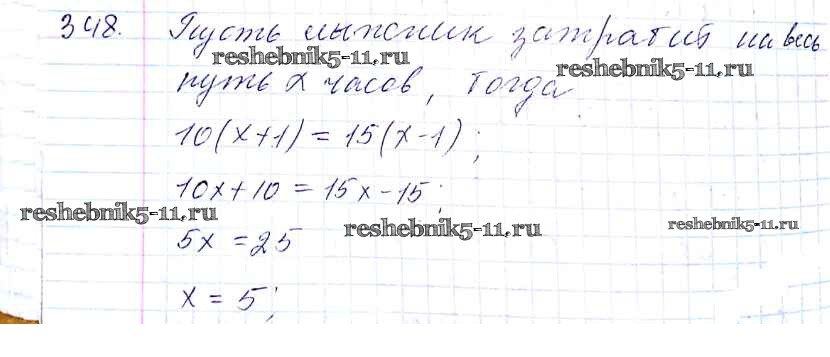 348. Пусть лыжник затратит на весь
reshebnik5-11.ru
reshebnik5-11.ru
путь x часов, тогда
10(x+1) = 15(x-1);
10x+10 = 15x-15;
reshebnik5-11.ru
reshebnik5-11.ru
reshebnik5-11.ru
5x = 25
x = 5;